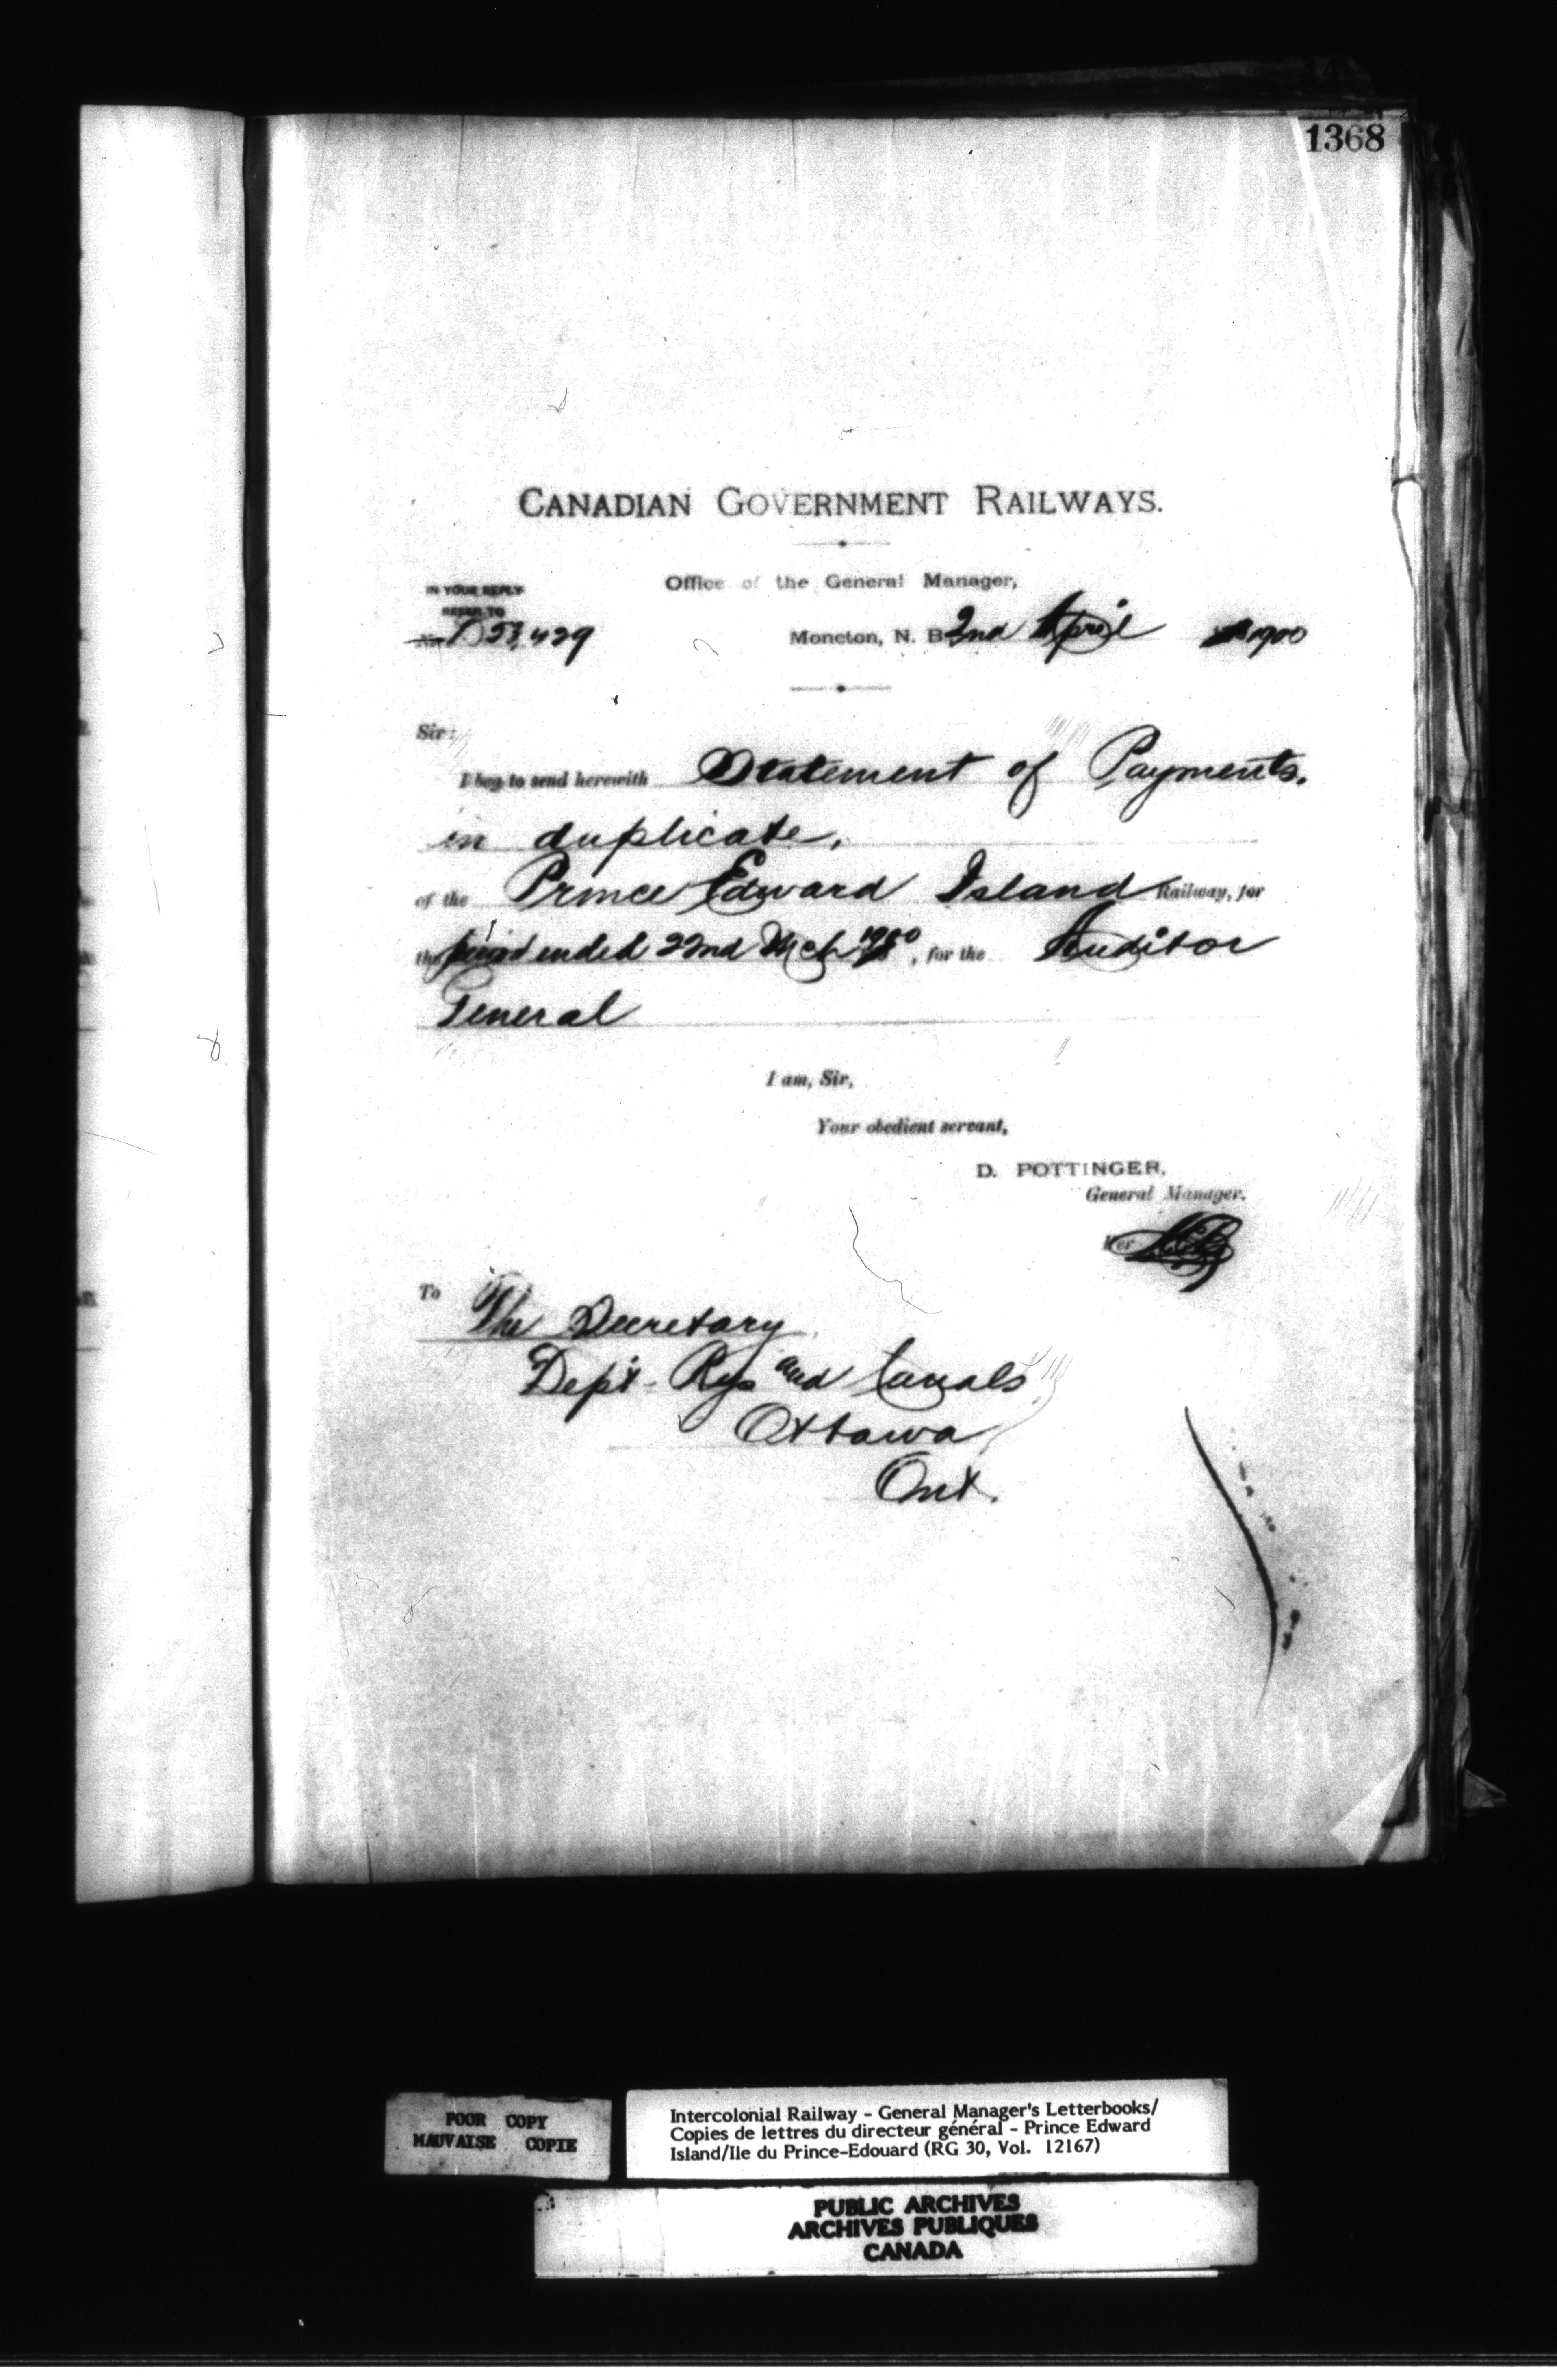 1368
CANADIAN GOVERNMENT RAILWAYS.
Office of the General Manager,
IN YOUR REPLY
REFER TO
Moncton, N. B. 2nd April 1900
Sir:
I beg to send herewith Statement of Payments.
in duplicate,
of the Prince Edward Island Railway, for
the period ended 22nd Mch 1900, for the Auditor
General
I am, Sir,
Your obedient servant,
D. POTTINGER,
General Manager.
Per
To The Secretary
Dept. Rys and Canals
Ottawa
Ont.
POOR COPY
MAUVAISE COPIE
Intercolonial Railway - General Manager's Letterbooks/
Copies de lettres du directeur général - Prince Edward
Island/Ile du Prince-Edouard (RG 30, Vol. 12167)
PUBLIC ARCHIVES
ARCHIVES PUBLIQUES
CANADA